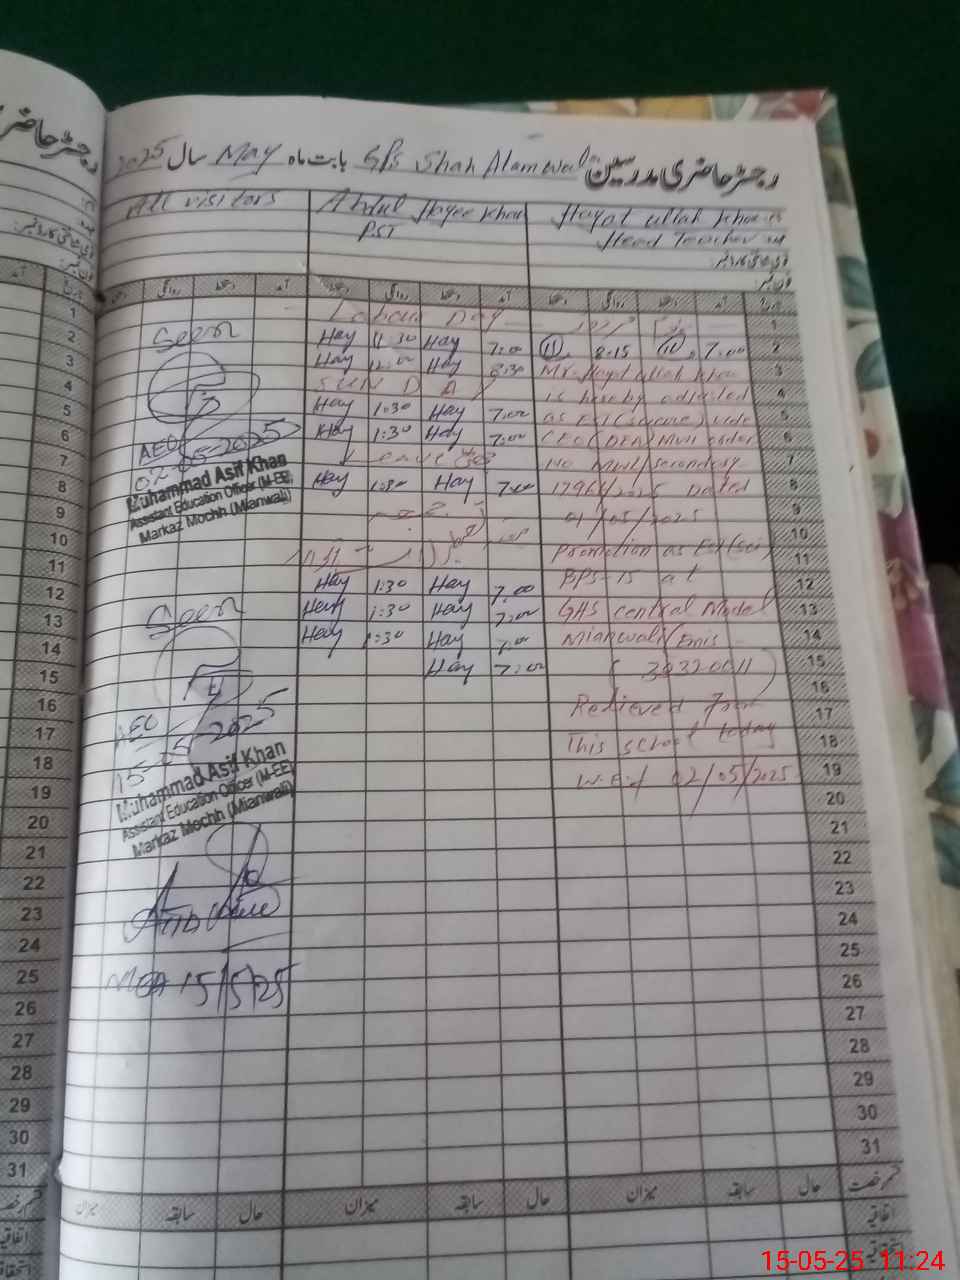 رجسٹر حاضری مدرسین GPS Shah Alam wala بابت ماه May سال 2025
All visitors
Abdul Hayee Khan
PST
Hayat ullah Khan
Head Teacher
آمد دستخط روانگی دستخط
1 Labour Day
2 Hay 11:30 Hay 7:00 8:15 7:00
3 Hay Hay 8:30 Mr. Hayat ullah Khan
4 SUNDAY is hereby adjusted
5 Hay 1:30 Hay 7:00 as EST (science) vide
6 Hay 1:30 Hay 7:00 CEO (DEA) Mwi order
7 Leave No Mwl/secondary
8 Hay 1:30 Hay 7:00 1796/2025 Dated
9 01/05/2025
10 Promotion as EST (sci)
11 BPS-15 at
12 Hay 1:30 Hay 7:00
13 Hay 1:30 Hay 7:00 GHS central Model
14 Hay 1:30 Hay 7:00 Mianwali (Emis
15 Hay 7:00
16 Relieved from
17 This school today
18
19 W.E.f 02/05/2025
20
21
22
23
24
25
26
27
28
29
30
31
Seen
AEO
02-05-2025
Muhammad Asif Khan
Assistant Education Officer (M-EE)
Markaz Mochh (Mianwali)
Seen
AEO
15-05-2025
Muhammad Asif Khan
Assistant Education Officer (M-EE)
Markaz Mochh (Mianwali)
MEA 15/5/25
قسم رخصت حال سابقہ میزان حال سابقہ میزان حال سابقہ میزان
اتفاقیہ
استحقاقیہ
15-05-25 11:24